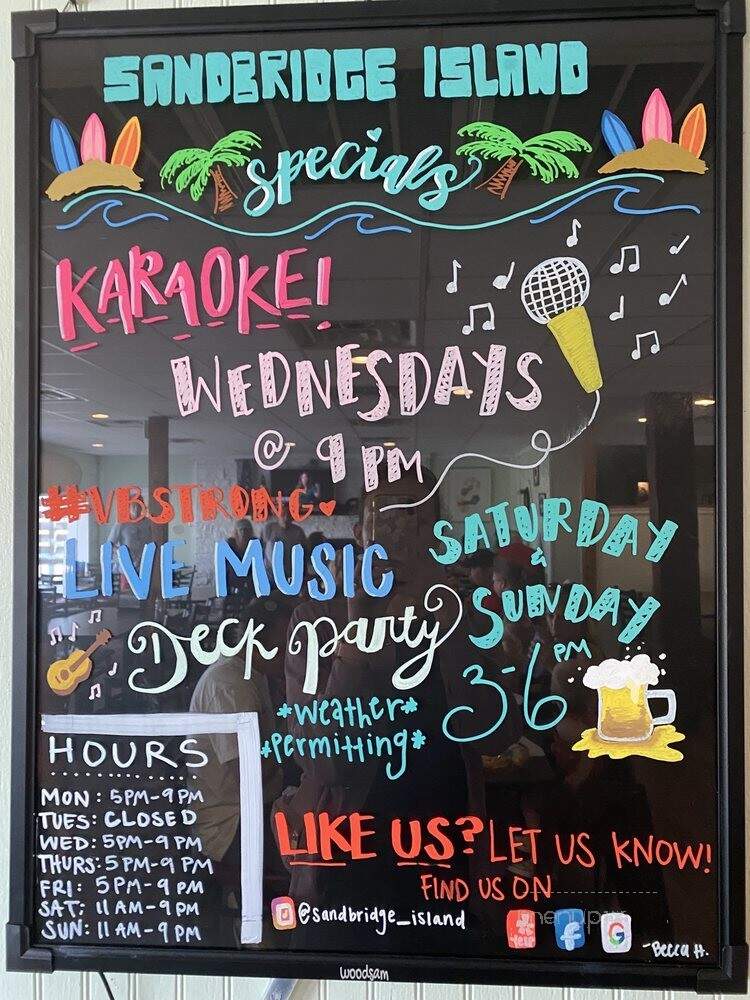 SANDBRIDGE ISLAND
specials
KARAOKE!
WEDNESDAYS
@ 9 PM
#VBSTRONG
LIVE MUSIC
Deck party
SATURDAY
&
SUNDAY
3-6 PM
*weather*
*permitting*
HOURS
MON: 5PM-9PM
TUES: CLOSED
WED: 5PM-9PM
THURS: 5PM-9PM
FRI: 5PM-9PM
SAT: 11AM-9PM
SUN: 11AM-9PM
LIKE US? LET US KNOW!
FIND US ON
@sandbridge_island
yelp f G
menupix
-Becca H.
woodsam